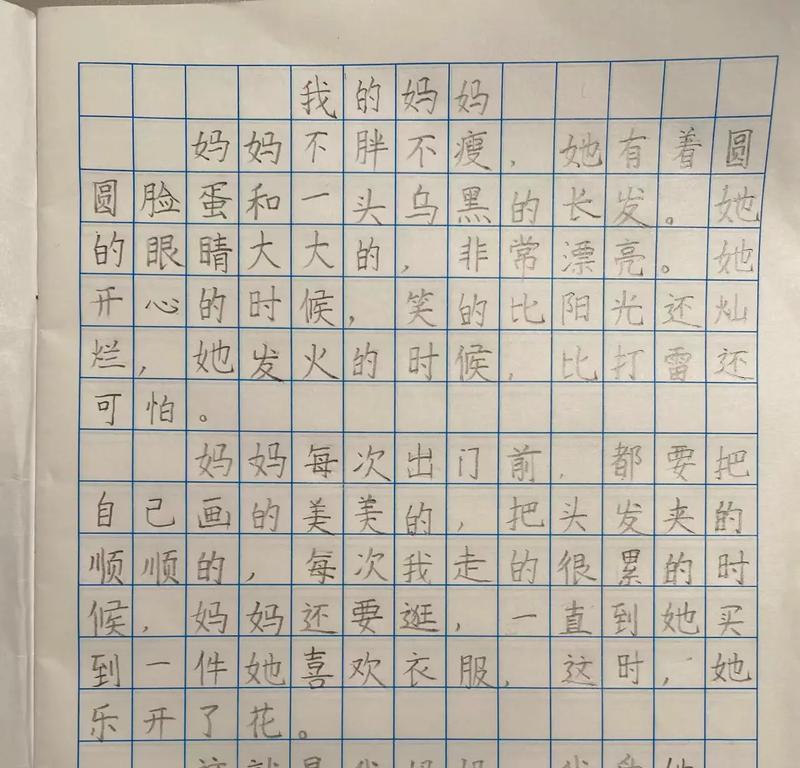 我的妈妈
妈妈不胖不瘦，她有着圆
圆脸蛋和一头乌黑的长发。她
的眼睛大大的，非常漂亮。她
开心的时候，笑的比阳光还灿
烂，她发火的时候，比打雷还
可怕。
妈妈每次出门前，都要把
自己画的美美的，把头发夹的
顺顺的，每次我走的很累的时
候，妈妈还要逛，一直到她买
到一件她喜欢衣服，这时，她
乐开了花。
这就是我妈妈，我